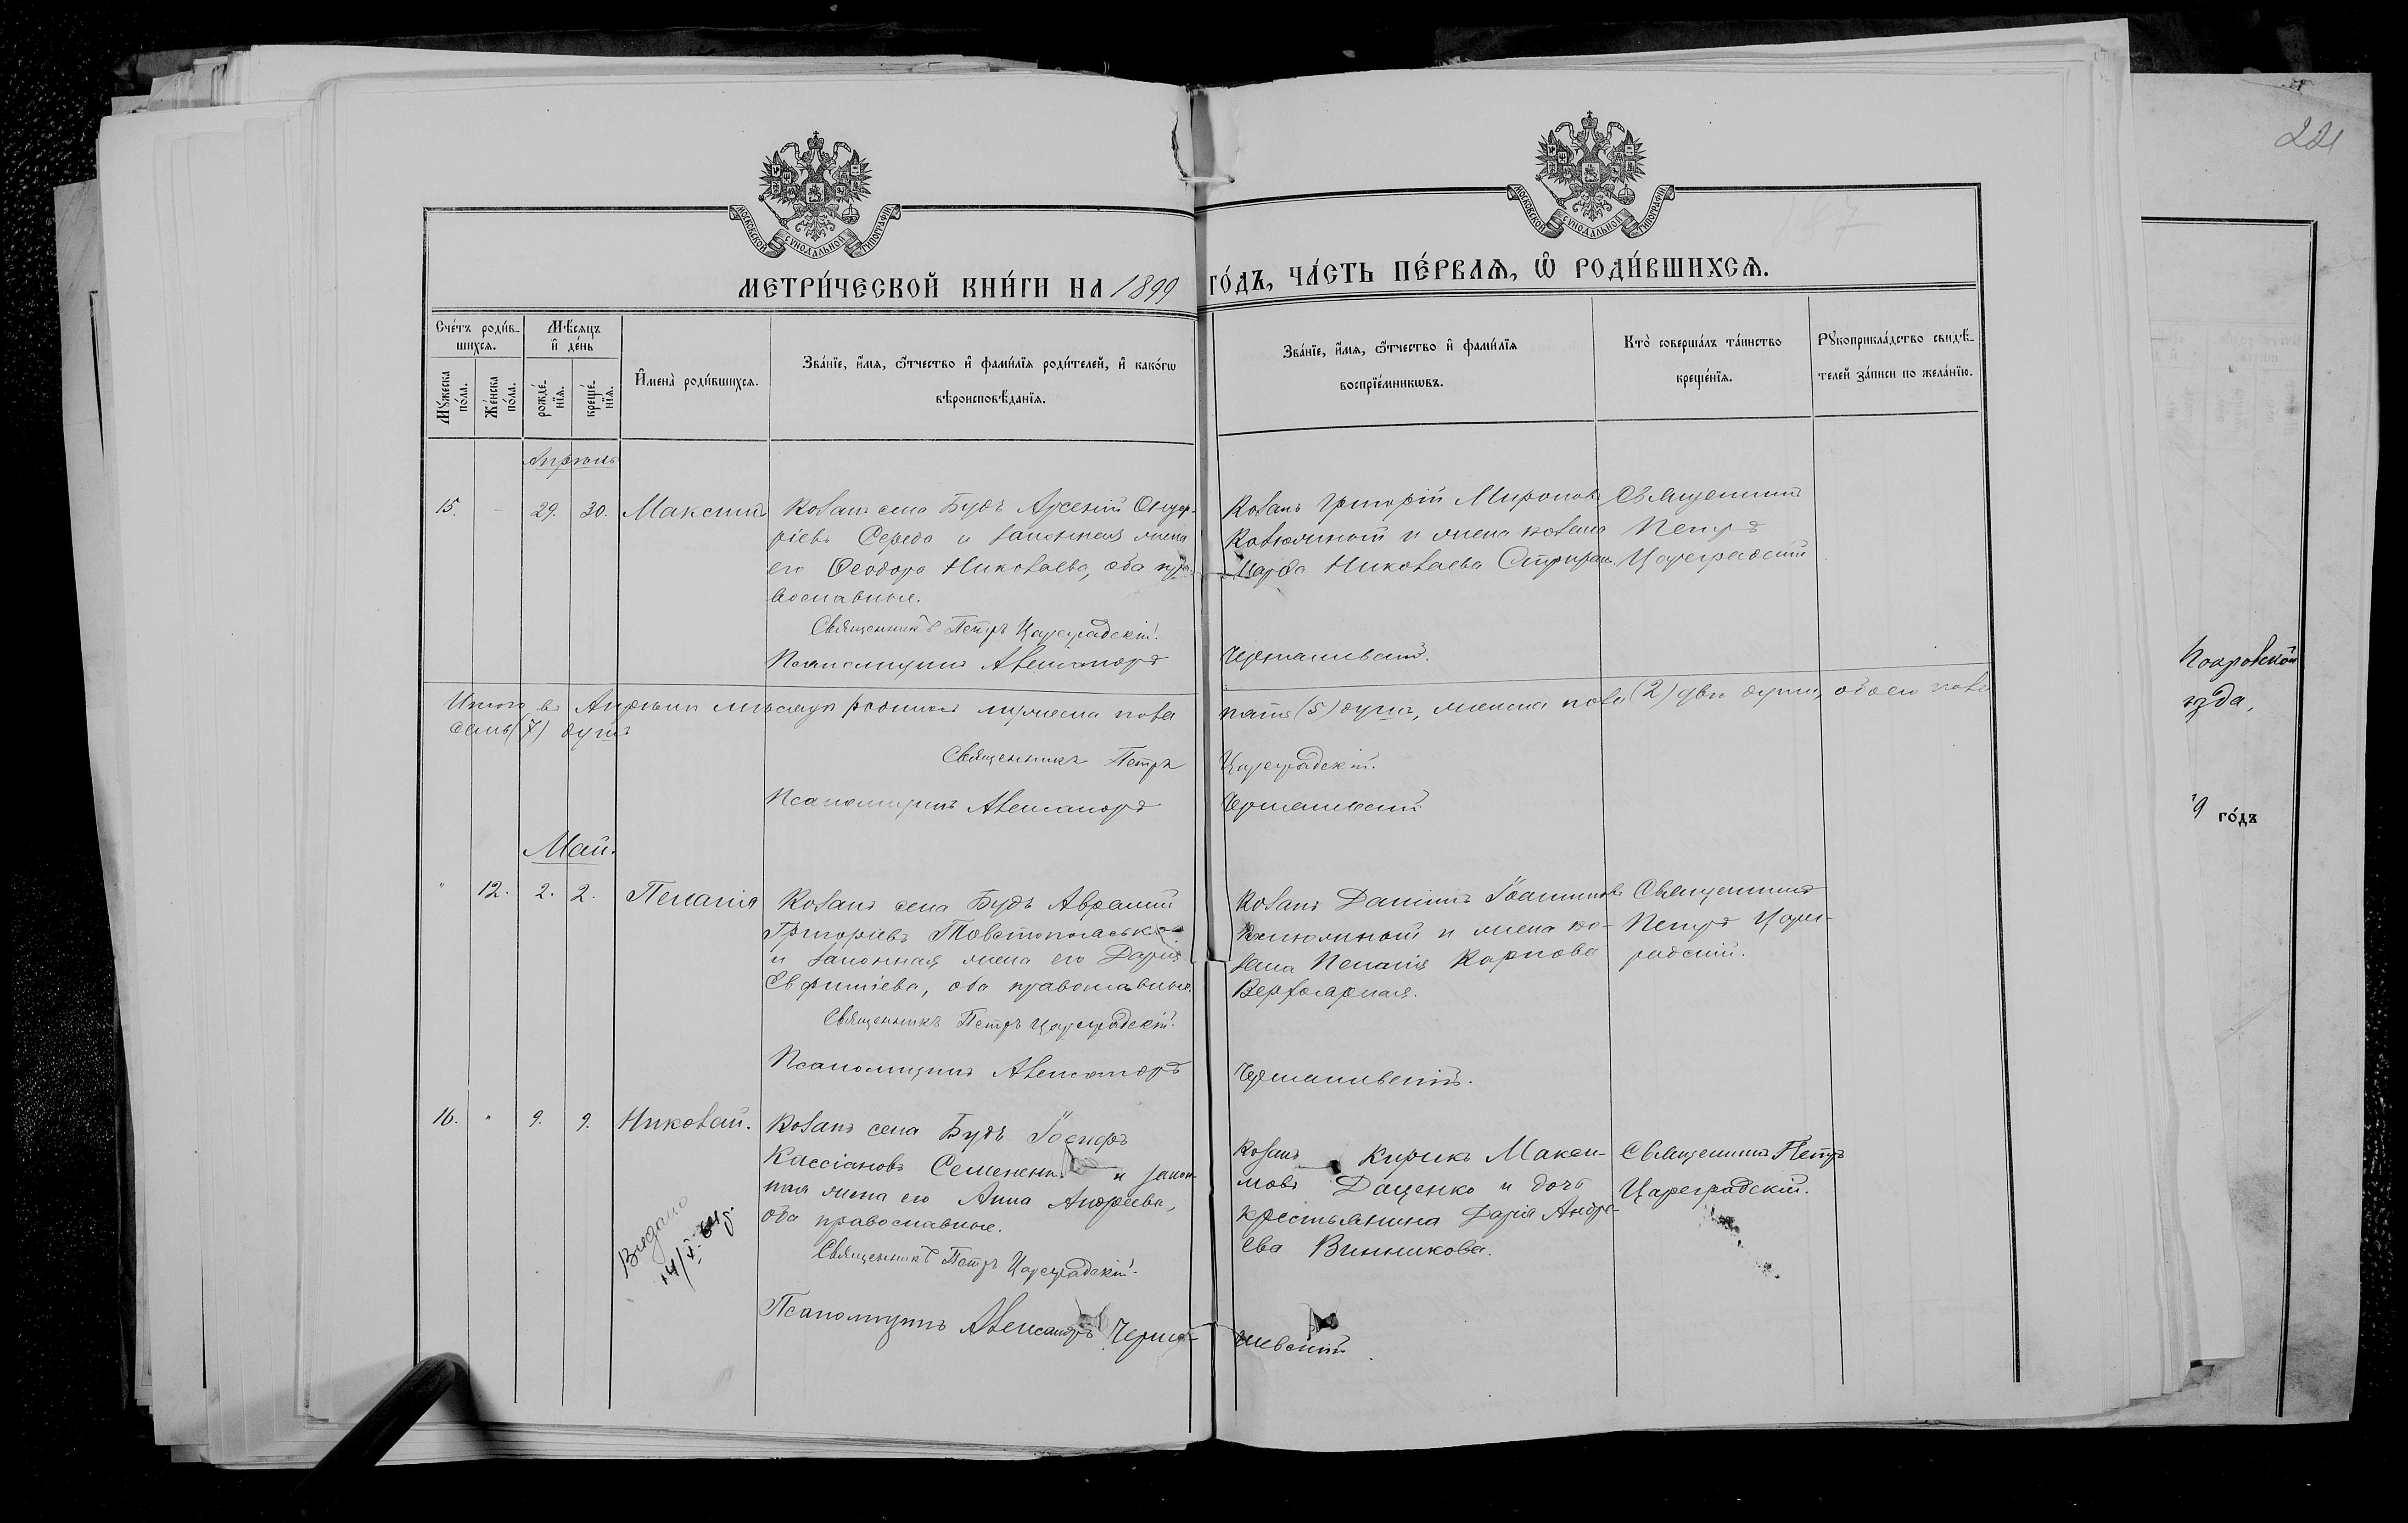 221
187
МОСКОВСКОЙ СѴНОДАЛЬНОЙ ТИПОГРАФІИ
МОСКОВСКОЙ СѴНОДАЛЬНОЙ ТИПОГРАФІИ
МЕТРИ́ЧЕСКОЙ КНИ́ГИ НА 1899 ГО́ДЪ, ЧА́СТЬ ПЕ́РВАѦ, Ѡ҆ РОДИ́ВШИХСѦ.
Сче́тъ роди́вшихсѧ.
Мꙋ́жеска по́ла.
Же́нска по́ла.
Мѣ́сѧцъ и҆ де́нь
рожде́нїѧ.
креще́нїѧ.
И҆мена̀ роди́вшихсѧ.
Зва́нїе, и҆́мѧ, ѻ҆́тчество и҆ фами́лїѧ роди́телей, и҆ како́гѡ
вѣроисповѣ́данїѧ.
Зва́нїе, и҆́мѧ, ѻ҆́тчество и҆ фами́лїѧ
воспрїе́мникѡвъ.
Кто̀ соверша́лъ та́инство
креще́нїѧ.
Рꙋкоприкла́дство свидѣ́телей за́писи по жела́нїю.
Апрѣль
15. - 29. 30. Максимъ
Козакъ села Будъ Арсеній
ріевъ Середа и законная жена
его Ѳеодора Николаева, оба пра-
вославные.
Священникъ Петръ Цареградскій.
Псаломщикъ Александръ
Козакъ Григорій Мироновъ
и жена козака
Марѳа Николаева
Священникъ
Петръ
Цареградскій
Итого въ Апрѣлѣ мѣсяцѣ родилось мужеска пола пять (5) душъ, женска пола (2) двѣ души, обоего пола
семь (7) душъ
Священникъ Петръ Цареградскій.
Псаломщикъ Александръ
Май.
" 12. 2. 2. Пелагія
Козакъ села Будъ Аврамій
Григоріевъ Товстополаська
и законная жена его Дарія
Евфиміева, оба православные.
Священникъ Петръ Цареградскій.
Псаломщикъ Александръ
Козакъ Даніилъ Іоанновъ
и жена ко-
зака Пелагія Карпова
Священникъ
Петръ Царег-
радскій.
16. " 9. 9. Николай.
Козакъ села Будъ Іосифъ
Кассіановъ Семененко и закон-
ная жена его Анна Андреева,
оба православные.
Священникъ Петръ Цареградскій.
Псаломщикъ Александръ
Козакъ Кирикъ Макси-
мовъ Даценко и дочь
крестьянина Дарія Андре-
ева Винникова.
Священникъ Петръ
Цареградскій.
Видано
Покровской
ѣзда,
9 го́дъ